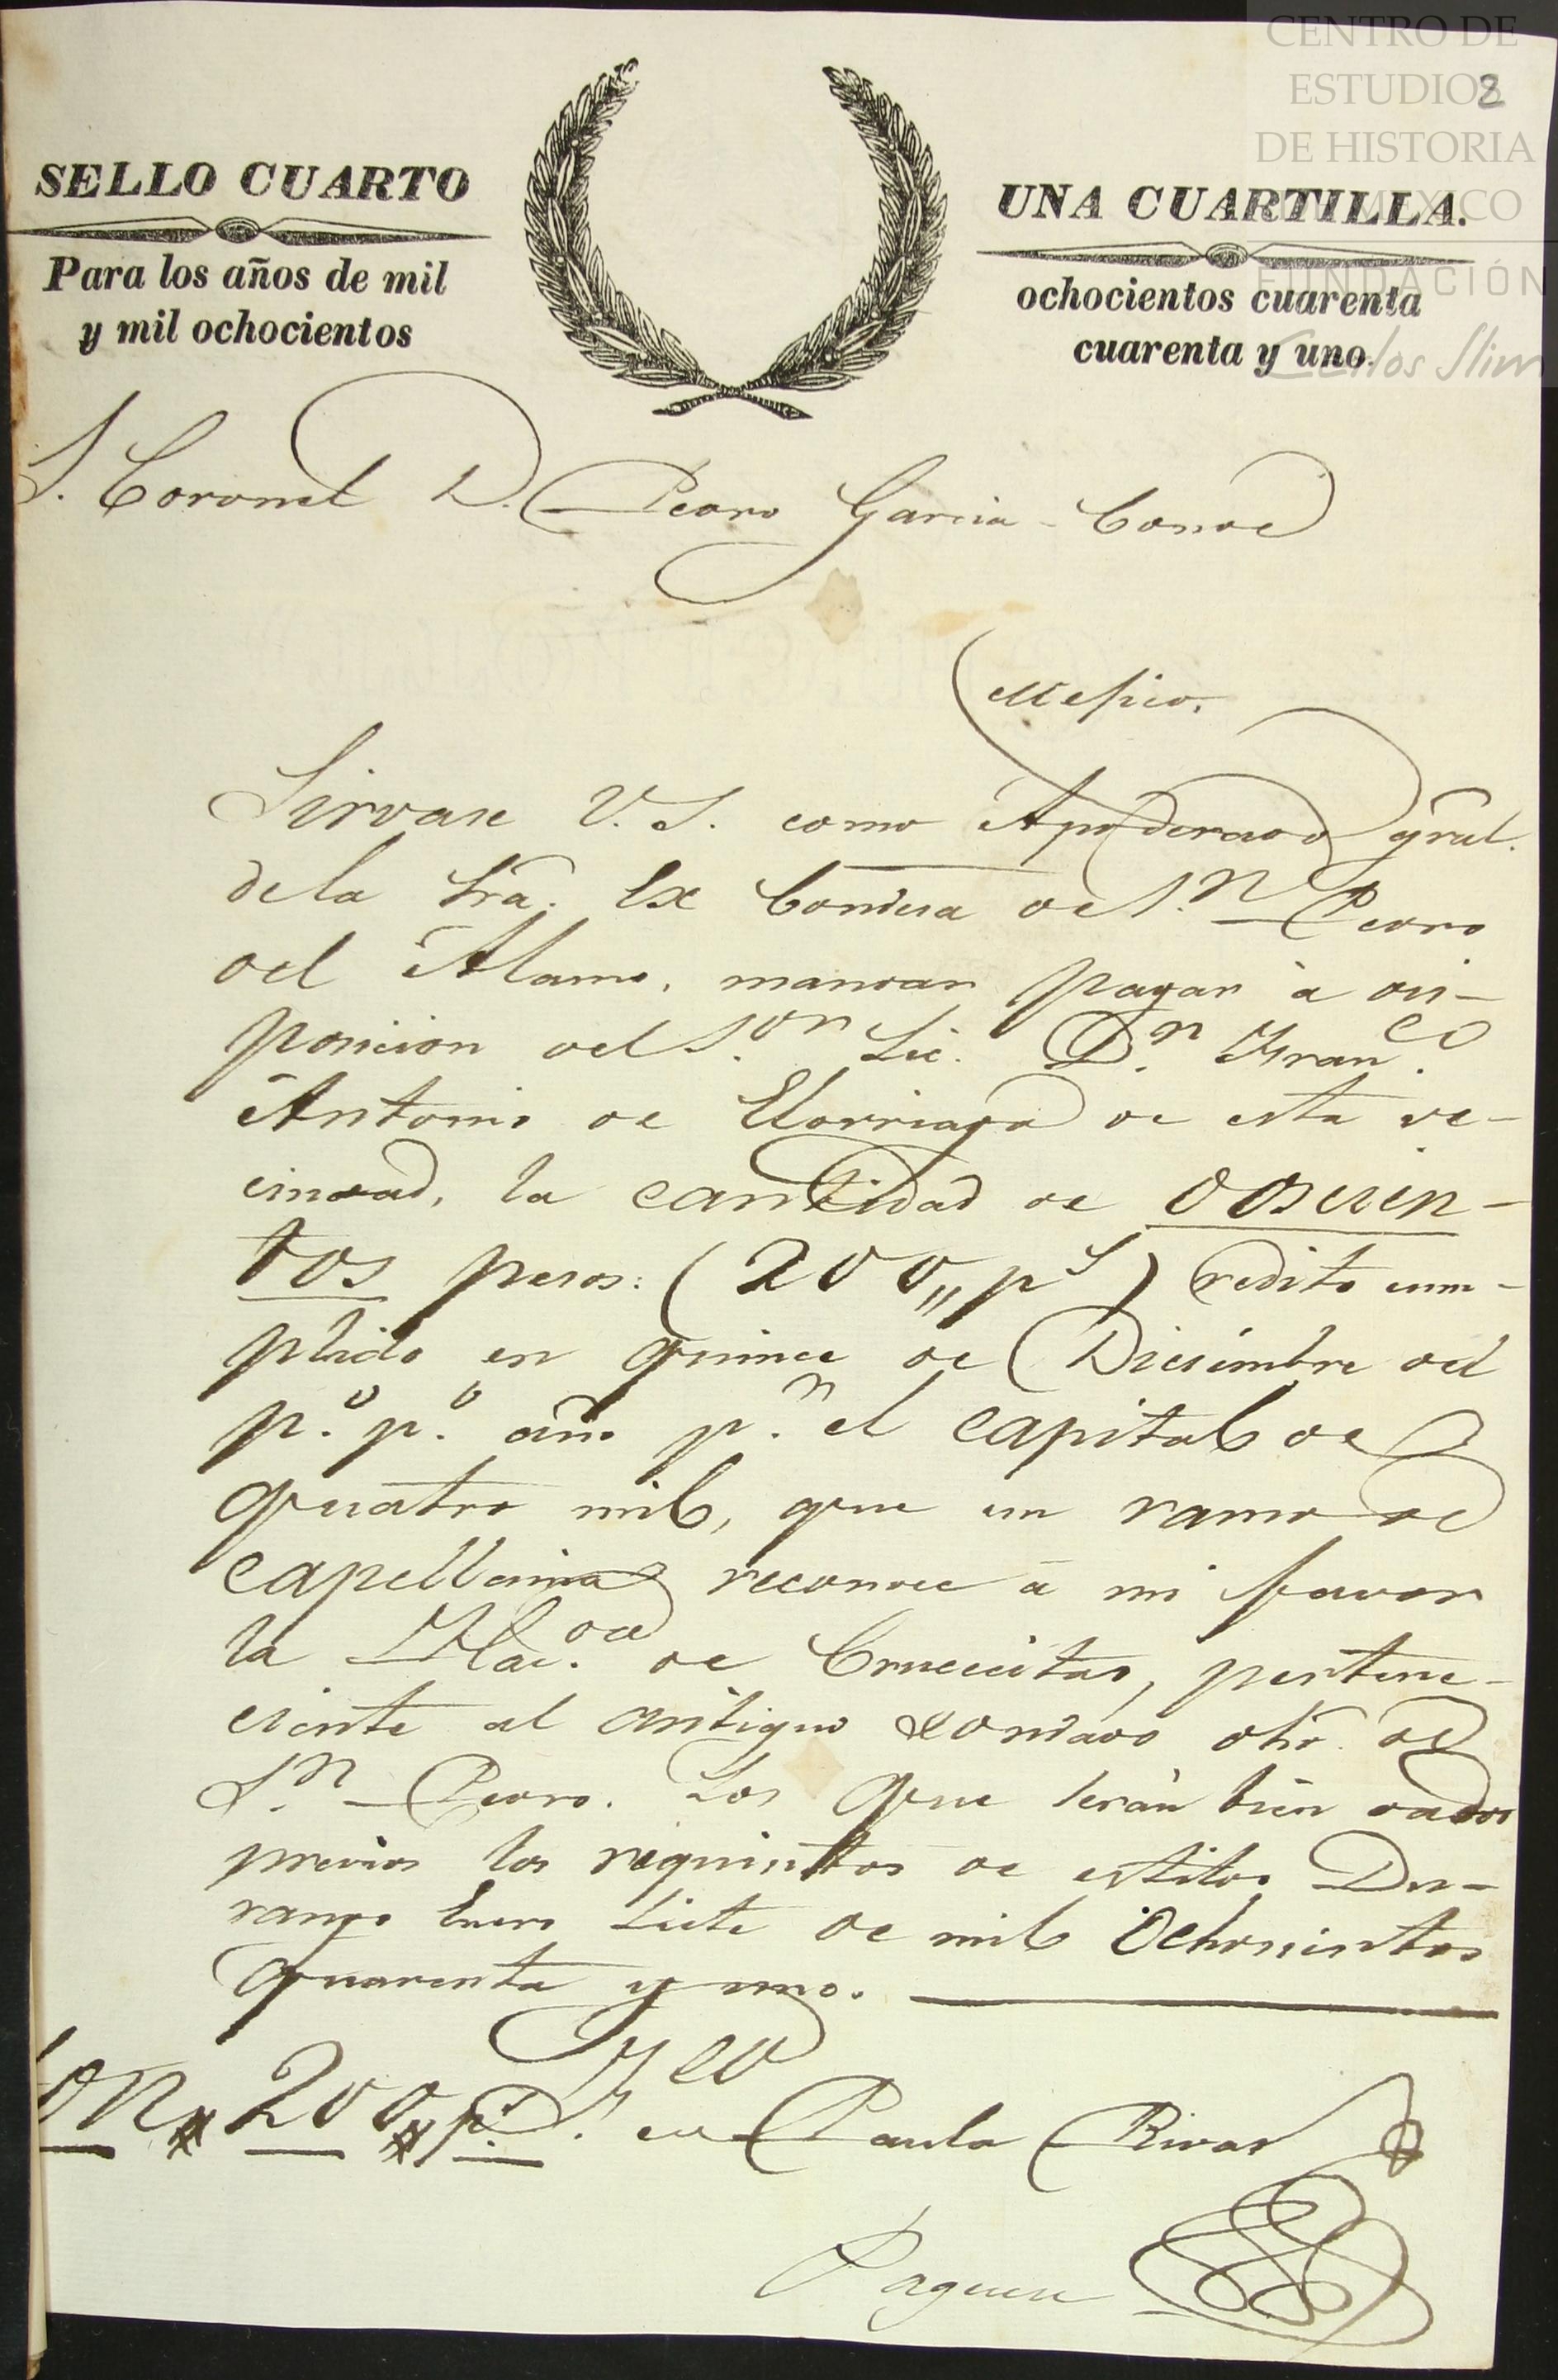 CENTRO DE
ESTUDIOS
DE HISTORIA
DE MÉXICO
FUNDACIÓN
Carlos Slim
2
SELLO CUARTO
UNA CUARTILLA.
Para los años de mil
ochocientos cuarenta
y mil ochocientos
cuarenta y uno.
S. Coronel D. Pedro Garcia Conde
Mejico.
Sirvase V.S. como Apoderado gral.
de la Sra. Ex Condesa de S.n Pedro
del Alamo, mandar pagar à dis-
posicion del S.or Lic. D.n Fran.co
Antonio de Elorriaga de esta ve-
cindad, la cantidad de doscien-
tos pesos: (200,, p.s) redito cum-
plido en quince de Diciembre del
p.o p.o año p.r el capital de
quatro mil, que en ramo de
capellania reconoce à mi favor
la Hac.da de Crucecitas, pertene-
ciente al antiguo condado dho. de
S.n Pedro. Los que serán bien dados
previos los requisitos de estilo. Du-
rango Enero siete de mil ochocientos
quarenta y uno.
Son 200 p.s
J. Fco de Paula Rivas
Paguese